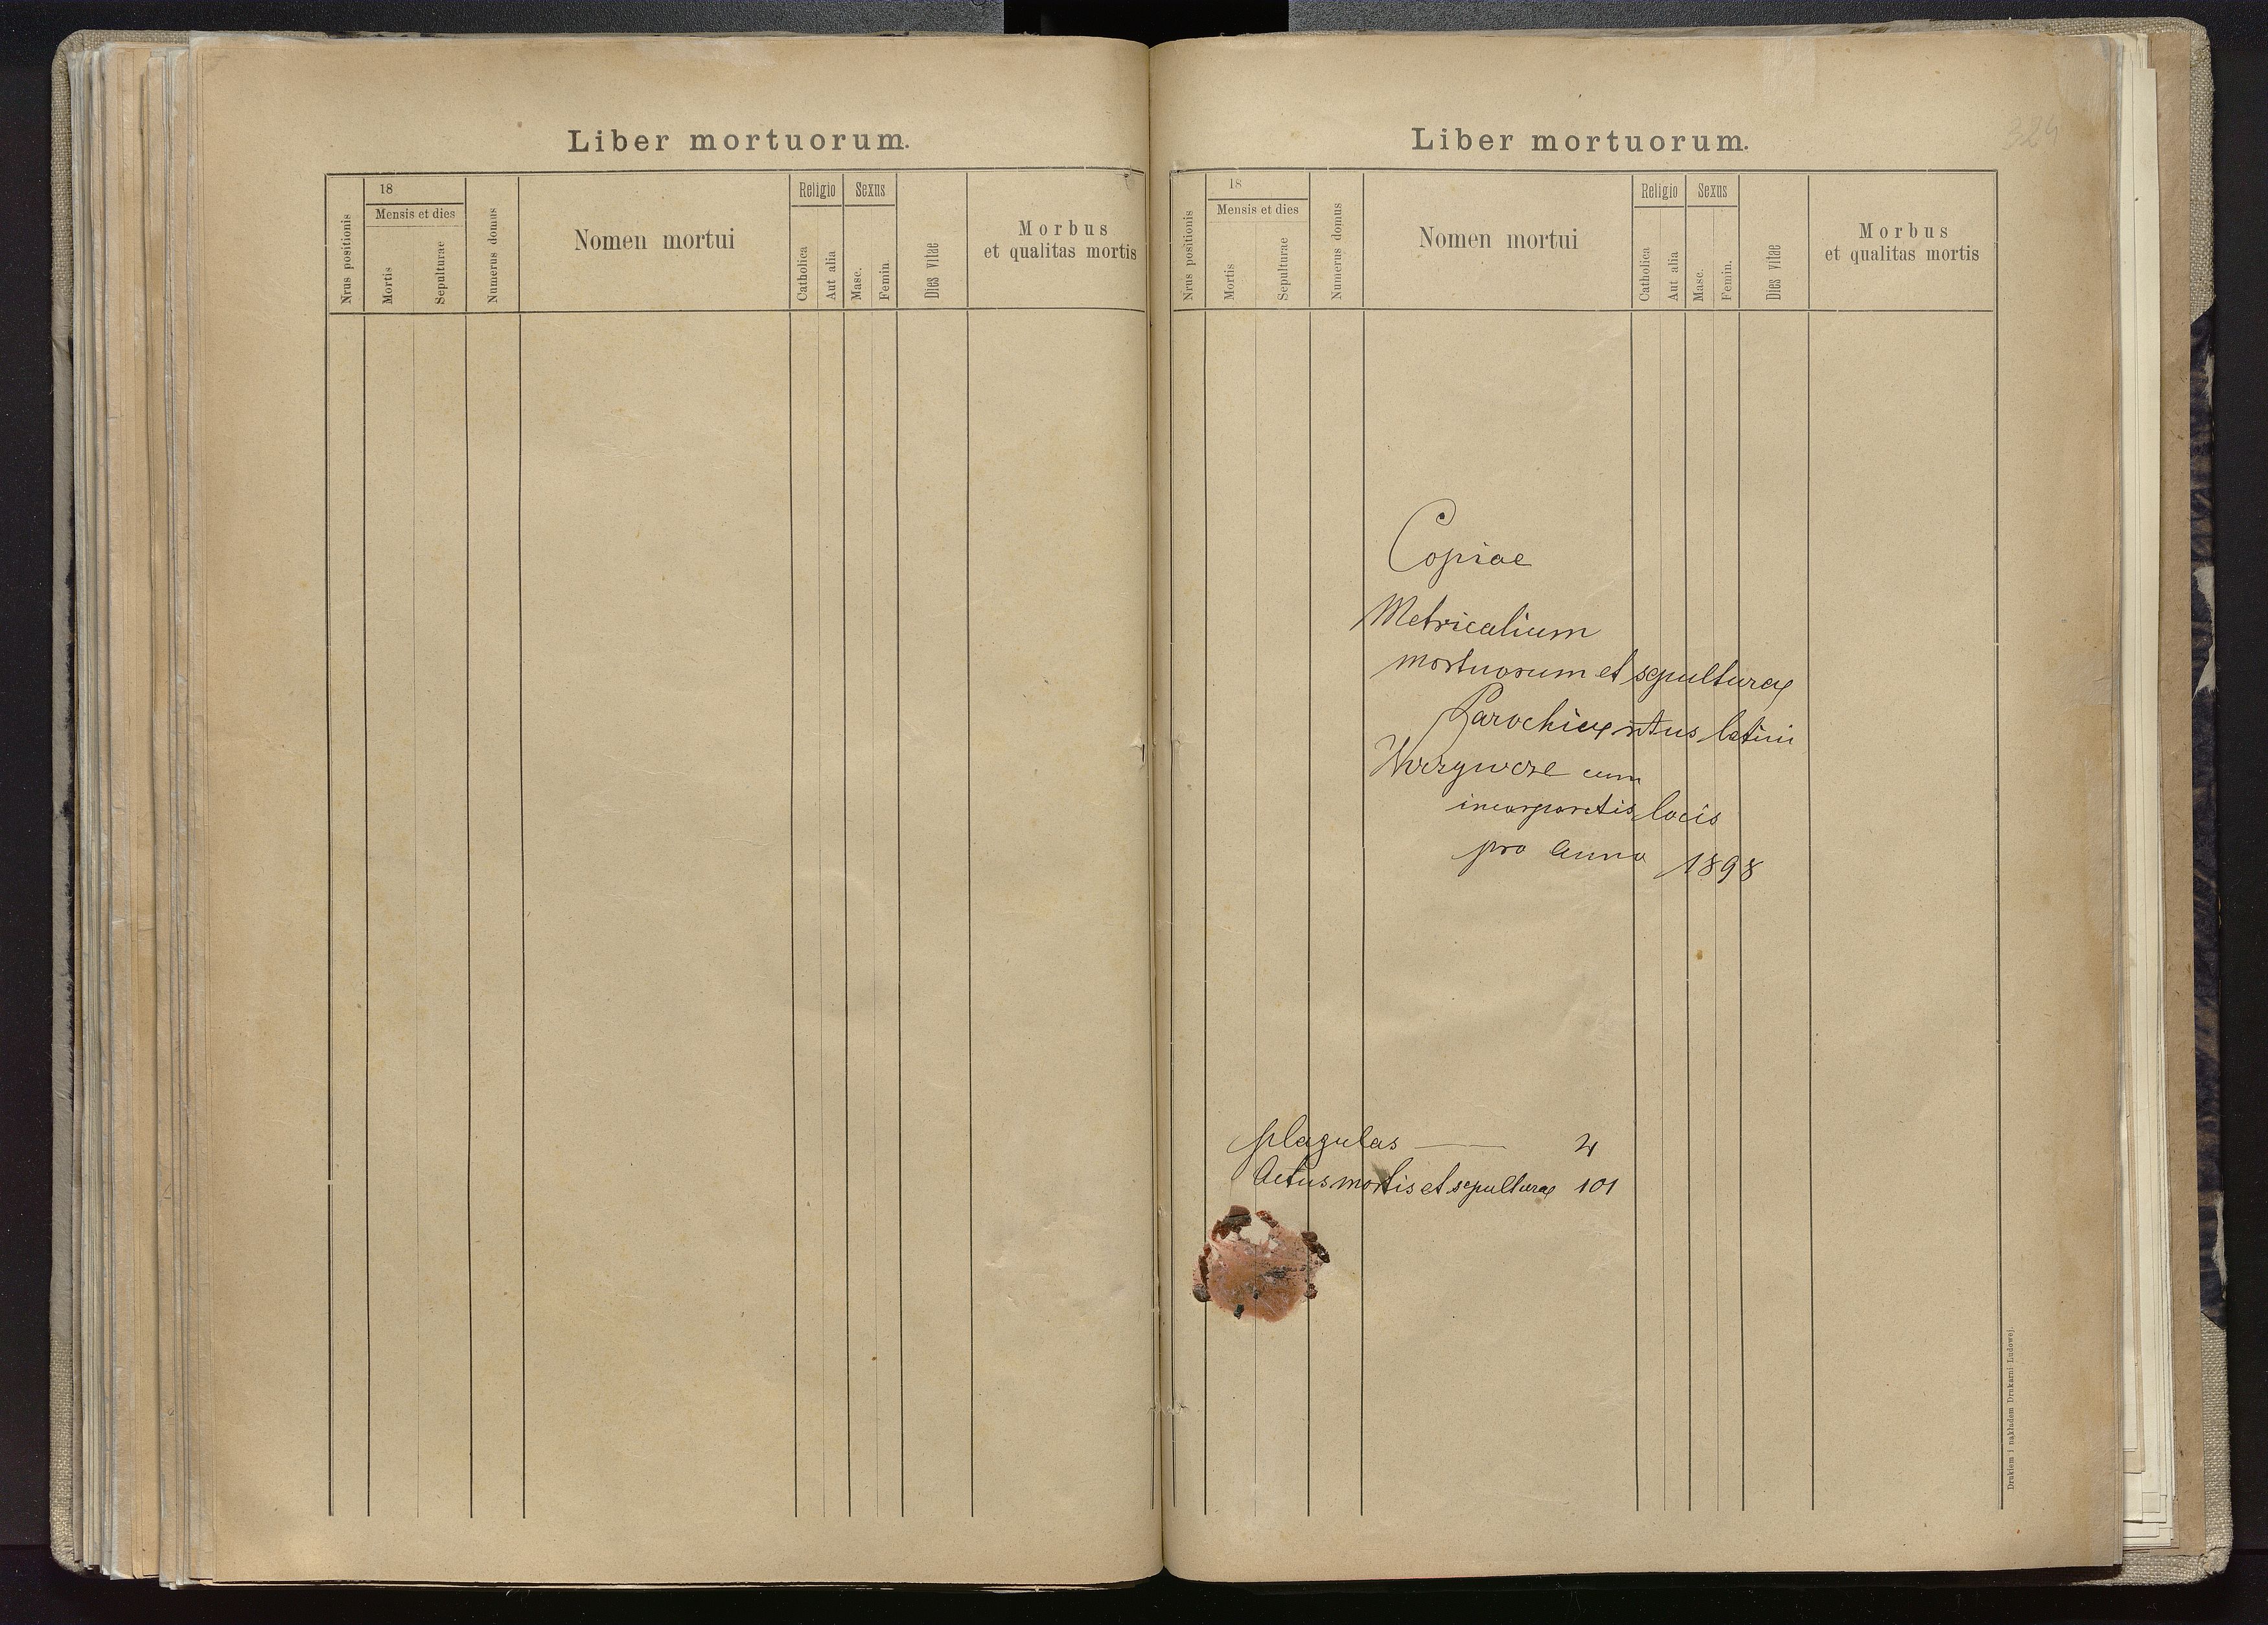 Liber mortuorum.
Nrus positionis
18
Mensis et dies
Mortis
Sepulturae
Numerus domus
Nomen mortui
Religio
Catholica
Aut alia
Sexus
Masc.
Femin.
Dies vitae
Morbus
et qualitas mortis
Liber mortuorum.
324
Nrus positionis
18
Mensis et dies
Mortis
Sepulturae
Numerus domus
Nomen mortui
Religio
Catholica
Aut alia
Sexus
Masc.
Femin.
Dies vitae
Morbus
et qualitas mortis
Copiae
Metricalium
mortuorum et sepulturae
Parochiae ritus latini
cum
incorporatis locis
pro Anno 1898
plagulas — 4
Actus mortis et sepulturae 101
Drukiem i nakładem Drukarni Ludowej.